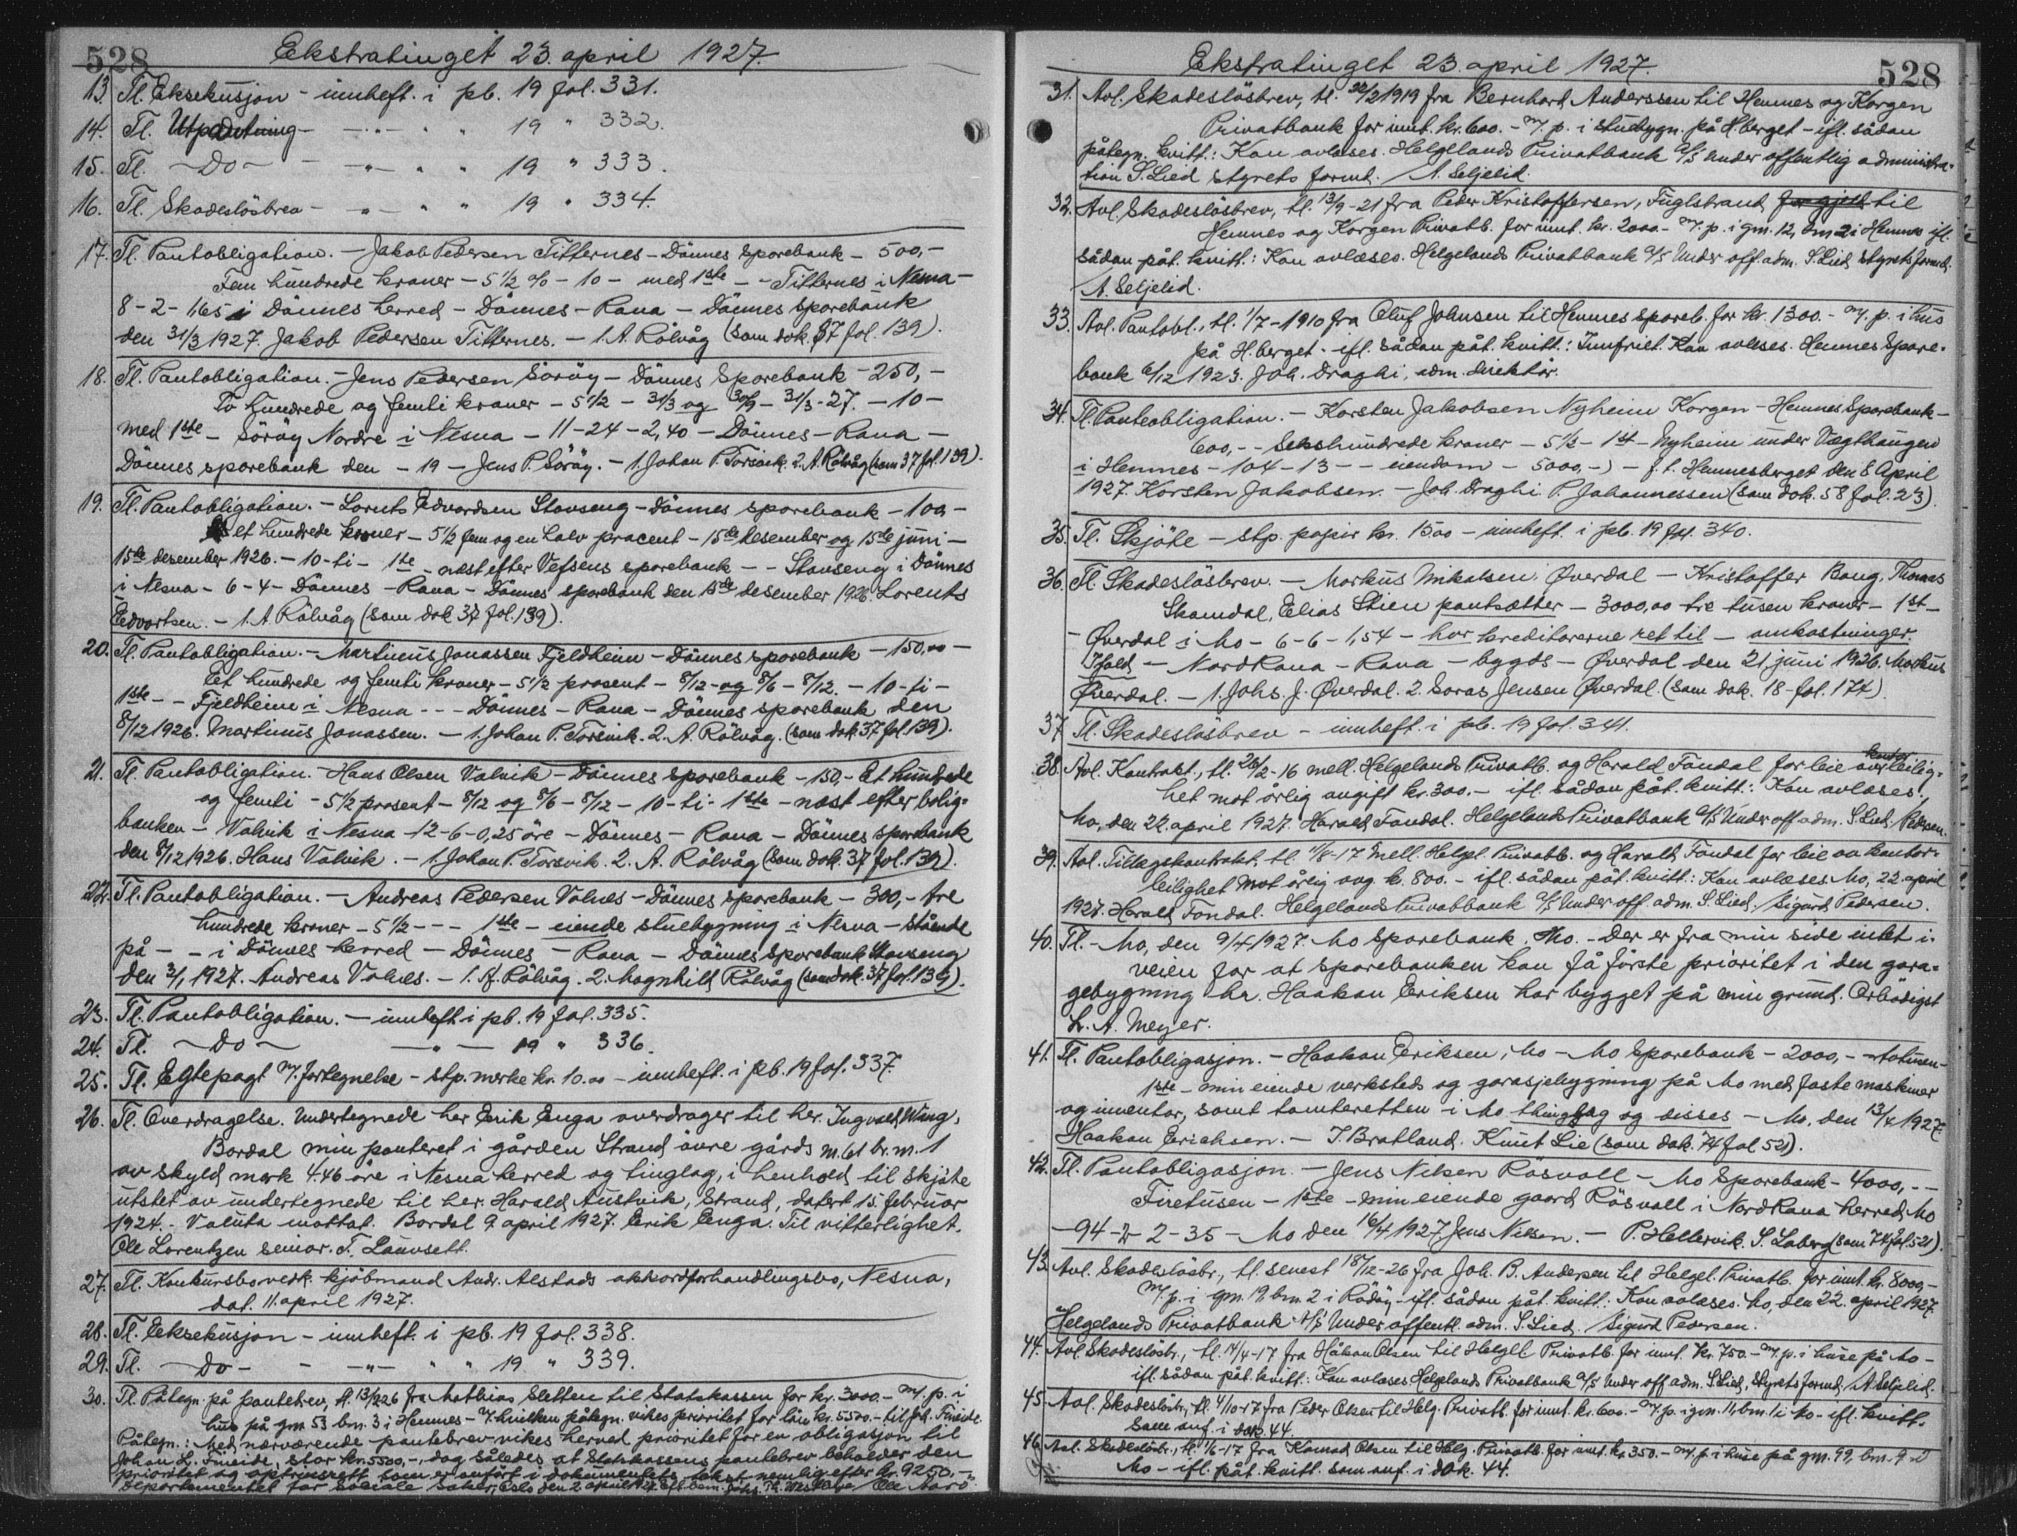 528 Ekstratinget 23. april 1927.
13. Tl. Eksekusjon - innheft. i pb. 19 fol. 331.
14. Tl. Utpantning - -"- " " 19 " 332.
15. Tl. - Do - - -"- " " 19 " 333.
16. Tl. Skadesløsbrev - -"- " " 19 " 334.
17. Tl. Pantobligation. - Jakob Pedersen Titternes - Dønnes sparebank - 500,-
Fem hundrede kroner - 5 1/2 % - 10 - med 1ste - - Titternes i Nesna -
8 - 2 - 1,65 i Dønnes herred - Dønnes - Rana - Dønnes sparebank
den 31/3 1927. Jakob Pedersen Titternes. - 1. A. Rölvåg (som dok. 37 fol. 139).
18. Tl. Pantobligation. - Jens Pedersen Sörøy - Dønnes Sparebank - 250,-
To hundrede og femti kroner - 5 1/2 - 31/3 og 30/9 - 31/3 - 27. - 10 -
med 1ste - Sörøy Nordre i Nesna - 11 - 24 - 2,40 - Dönnes - Rana -
Dønnes sparebank den - 19 - Jens P. Sörøy. - 1. Johan P. Forsvik 2. A. Rölvåg (som 37 fol. 139).
19. Tl. Pantobligation. - Lornts Edvardsen Stavseng - Dønnes sparebank - 100,-
et hundrede kroner - 5 1/2 fem og en halv procent - 15de desember og 15de juni -
15de desember 1926. - 10 - ti - 1ste - næst efter Vefsens sparebank - - Stavseng i Dønnes
i Nesna - 6 - 4 - Dønnes - Rana - Dønnes sparebank den 15de desember 1926. Lorents
Edvartsen. - 1. A. Rölvåg (som dok 37 fol. 139).
20. Tl. Pantobligation. - Martinus Jonassen Fjeldheim - Dønnes sparebank - 150,00 -
Et hundrede og femti kroner - 5 1/2 prosent - 8/12 og 8/6 - 8/12. - 10 - ti -
1ste - - Fjeldheim i Nesna - - - Dønnes - Rana - Dønnes sparebank den
8/12 1926. Martinus Jonassen. - 1. Johan P. Forsvik. 2. A. Rölvåg. (som dok. 37 fol. 139).
21. Tl. Pantobligation. - Hans Olsen Valvik - Dønnes sparebank - 150,- Et hundrede
og femti - 5 1/2 prosent - 8/12 og 8/6 - 8/12 - 10 - ti - 1ste - næst efter bolig-
banken - Valvik i Nesna - 12 - 6 - 0,25 öre - Dønnes - Rana - Dønnes sparebank
den 8/12 1926. Hans Valvik. - 1. Johan P. Forsvik. 2. A. Rölvåg (som dok. 37 fol. 139).
22. Tl. Pantobligation. - Andreas Pedersen Valnes - Dønnes sparebank - 300,- tre
hundrede kroner - 5 1/2 - - - 1ste - eiende stuebygning i Nesna - stående
på - - i Dønnes herred - Dønnes - Rana - Dønnes Sparebank Stavseng
den 3/1 1927. Andreas Valnes. - 1. A. Rölvåg. 2. Magnhild Rölvåg (som dok. 37 fol 139).
23. Tl. Pantobligation. - innheft i pb. 19 fol. 335.
24. Tl. - Do - -"- 19 " 336.
25. Tl. Egtepagt m/. fortegnelse - stp. merke kr. 10.00 - innheft. i pb. 19 fol. 337.
26. Tl. Overdragelse. Undertegnede her Erik Enga overdrager til her. Ingvald Wang,
Bordal min panteret i gården Strand övre gårds nr. 61 br. nr. 1
av skyld mark 4.46 öre i Nesna herred og tinglag, i henhold til skjøte
utstet av undertegnede til her. Harald Austvik, Strand, datert 15. februar
1924. - Valuta mottat. Bordal 9. april 1927. Erik Enga. Til vitterlighet.
Ole Lorentzen senior. T. Lauvsett.
27. Tl. Konkursbo vedk. kjöbmand Andr. Alstads akkordforhandlingsbo, Nesna,
dat. 11. april 1927.
28. Tl. Eeksekusjon - innheft i pb. 19 fol. 338.
29. Tl. - Do - - -"- " " 19 " 339.
30. Tl. Påtegn. på pantebrev, tl. 13/2 26 fra Mathias Sletten til Statskassen for kr. 3000.- m/. p. i
hus på gm. 53 bm. 3 i Hemnes - v/. hvilken påtegn. vikes prioritet for lån kr. 5500.- til Joh. Fineide.
Påtegn.: Med nærværende pantebrev vikes herved prioritet for en obligasjon til
Johan L. Fineide, stor kr. 5500,-, dog således at Statskassens pantebrev beholder den
prioritet og optrinsrett som er anført i dokumentets tekst nemlig efter kr. 9250,-
Departementet for sociale saker, Oslo den 2 april 1927. Eft. bem. Ole Aarö
Ekstratinget 23. april 1927. 528
31. Avl. Skadesløsbrev, tl. 22/2 1919 fra Bernhard Anderssen til Hemnes og Korgen
Privatbank for innt. kr. 600.- m/. p. i stuebygn. på H.berget - ifl. sådan
påtegn. kvitt.: Kan avlæses. Helgelands Privatbank A/S Under offentlig administra-
tion S. Lied styrets formd. A. Seljelid.
32. Avl. Skadesløsbrev, tl. 13/9 - 21 fra Peder Kristoffersen, Fuglstrand for gjeld til
Hemnes og Korgen Privatb. for innt. kr. 2000.- m/. p. i gm. 12, bm 2 i Hemnes ifl.
sådan påt. kvitt.: Kan avlæses. Helgelands Privatbank A/S Under off. adm. S. Lied styrets formd.
A. Seljelid.
33. Avl. Pantobl., tl. 1/7 - 1910 fra Oluf Johnsen til Hemnes spareb. for kr. 1300.- m/. p. i hus
på H.berget - ifl. sådan påt. kvitt.: Innfriet Kan avleses. Hemnes Spare-
bank 6/12 1923. Joh. Draghi, adm. direktør.
34. Tl. Panteobligation. - Karsten Jakobsen Nyheim Korgen - Hemnes Sparebank -
600,- - Sekshundrede kroner - 5 1/2 - 1st - Nyheim under Vægthaugen
i Hemnes - 104 - 13 - - eiendom - 5000,- ) - f. t. Hemnesberget den 8 April
1927. Karsten Jakobsen. - Joh. Draghi P. Johannessen (som dok. 58 fol. 23).
35. Tl. Skjöte - stp. papir kr. 1500 - innheft. i pb. 19 fol. 340.
36. Tl. Skadesløsbrev. - Markus Mikalsen Øverdal - Kristoffer Bang, Thomas
Skamdal, Elias Stien pantsætter - 3000,00 tre tusen kroner - 1st -
- Øverdal i Mo - 6 - 6 - 1,54 - har kreditorerne ret til - omkostninger.
Ifald - Nord Rana - Rana - bygds - Øverdal den 21, juni 1926. Markus
Øverdal. - 1. Johs. J. Øverdal. 2. Saras Jensen Øverdal (som dok. 18 - fol. 174).
37 Tl. Skadesløsbrev - innheft. i pb. 19 fol. 341.
38. Avl. Kontrakt, tl. 26/2 - 16 mell. Helgelands Privatb. og Harald Fondal for leie av kontor leilig-
het mot årlig avgift kr. 300.- ifl. sådan påt. kvitt.: Kan avlæses.
Mo, den 22. april 1927. Harald Fondal. Helgelands Privatbank A/S Under off. adm. S. Lied. Pedersen.
39. Avl. Tillegskontrakt, tl. 11/8 - 17 mell. Helgl. Privatb. og Harald Fondal for leie av kontor-
leilighet mot årlig avg. kr. 800.- ifl. sådan påt. kvitt.: Kan avlæses Mo, 22. april
1927. Harald Fondal. Helgelands Privatbank A/S Under off. adm. S. Lied, Sigurd Pedersen.
40. Tl. - Mo, den 9/4 1927. Mo Sparebank, Mo. - Der er fra min side intet i
veien for at sparebanken kan få første prioritet i den gara-
gebygning hr. Haakon Eriksen har bygget på min grund. Ærbødigst
L. A. Meyer.
41. Tl. Pantobligasjon. - Haakon Eriksen, Mo - Mo Sparebank - 2000,- - totusen -
1ste - min eiende verksteds og garasjebygning på Mo med faste maskiner
og inventar, samt tomteretten i Mo thinglag og disses - Mo, den 13/4 1927.
Haakon Erichsen. - J. Bratland. Knut Lie (som dok. 74 fol 521).
42. Tl. Pantobligasjon. - Jens Nilsen Røsvoll - Mo Sparebank - 4000,- -
Firetusen - 1ste - min eiende gaard Røsvoll i Nord Rana herred Mo
- 94 - 2 - 2 - 35 - Mo den 16/4 1927 Jens Nilsen. - P. Hellervik. S. Laberg (som 74 fol. 521).
43. Avl. Skadesløsbr., tl. senest 18/12 - 26 fra Joh. B. Andersen til Helgel. Privatb. for innt. kr. 8000,-
m/. p. i gm. 19, bm. 2 i Rödöy - ifl. sådan påt. kvitt.: Kan avlæses. Mo, den 22. april 1927,
Helgelands Privatbank A/S Under offentl. adm. S. Lied. Sigurd Pedersen.
44. Avl. Skadesløsbr., tl. 14/4 - 17 fra Håkon Olsen til Helgel. Privatb. for innt. kr. 750.- m/. p. i huse på Mo -
ifl. sådan påt. kvitt.: Kan avlæses Helgelands Privatbank A/S Under off. adm. S. Lied, styrets formd. A. Seljelid.
45 Avl. Skadesløsbr, tl. 4/10 - 17 fra Peder Olsen til Helg. Privatb. for innt. kr. 600.- m/. p. i gm. 11, bm. 1 i Mo - ifl. kvitt.
som anf. i dok. 44.
46 Avl. Skadesløsbr., tl. 1/6 - 17 fra Konrad Olsen til Helg. Privatb. for innt. kr. 350.- m/. p. i huse på gm. 99, bm. 9
Mo - ifl. påt. kvitt. som anf. i dok. 44.